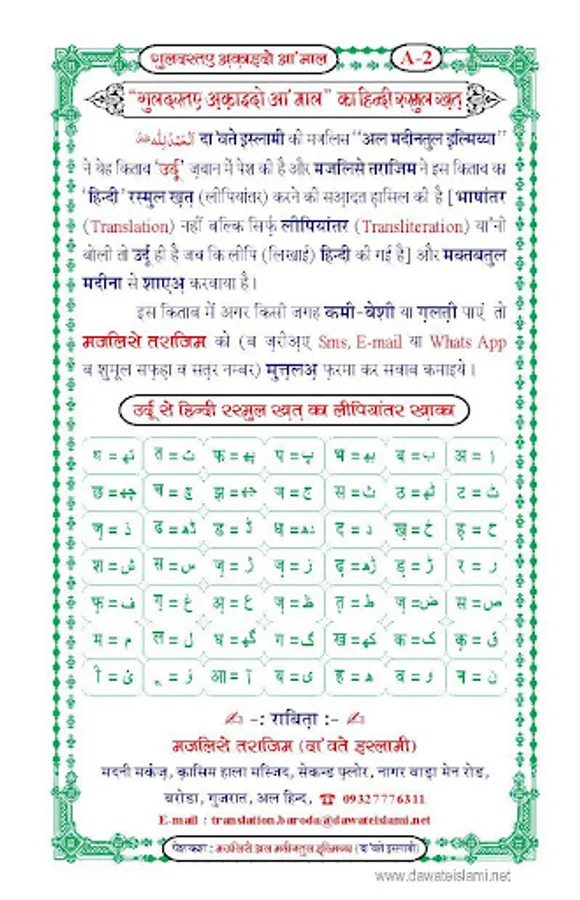 गुलदस्तए अ़क़ाइदो आ'माल
A-2
"गुलदस्तए अ़क़ाइदो आ'माल" का हिन्दी रस्मुल ख़त़
दा'वते इस्लामी की मजलिस "अल मदीनतुल इल्मिय्या"
ने येह किताब 'उर्दू' ज़बान में पेश की है और मजलिसे तराजिम ने इस किताब का
'हिन्दी' रस्मुल ख़त़ (लीपियांतर) करने की सआ़दत ह़ासिल की है [भाषांतर
(Translation) नहीं बल्कि सिर्फ़ लीपियांतर (Transliteration) या'नी
बोली तो उर्दू ही है जब कि लीपि (लिखाई) हिन्दी की गई है] और मक्तबतुल
मदीना से शाएअ़ करवाया है।
इस किताब में अगर किसी जगह कमी-बेशी या ग़लत़ी पाएं तो
मजलिसे तराजिम को (ब ज़रीअ़ए Sms, E-mail या Whats App
ब शुमूल सफ़ह़ा व सत़र नम्बर) मुत्त़लअ़ फ़रमा कर सवाब कमाइये।
उर्दू से हिन्दी रस्मुल ख़त़ का लीपियांतर ख़ाका
थ = تھ त = ت फ = پھ प = پ भ = بھ ब = ب अ = ا
छ = چھ च = چ झ = جھ ज = ج स = ث ठ = ٹھ ट = ٹ
ज़ = ذ ढ = ڈھ ड = ڈ ध = دھ द = د ख़ = خ ह़ = ح
श = ش स = س ज़ = ژ ज़ = ز ढ़ = ڑھ ड़ = ڑ र = ر
फ़ = ف ग़ = غ अ़ = ع ज़ = ظ त़ = ط ज़ = ض स = ص
म = م ल = ل घ = گھ ग = گ ख = کھ क = ک क़ = ق
आ = آ य = ی ह = ہ व = و न = ن
-: राबित़ा :-
मजलिसे तराजिम (दा'वते इस्लामी)
मदनी मर्कज़, क़ासिम हाला मस्जिद, सेकन्ड फ़्लोर, नागर वाड़ा मेन रोड,
बरोडा, गुजरात, अल हिन्द, ☎ 09327776311
E-mail : translation.baroda@dawateislami.net
पेशकश : मजलिसे अल मदीनतुल इल्मिय्या (दा'वते इस्लामी)
www.dawateislami.net